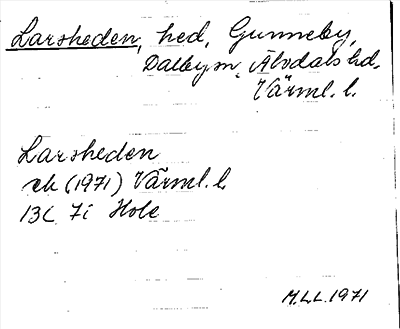 Larsheden, hed, Gunneby,
Dalby sn, Älvdals hd.
Värml. l.
Larsheden
ek (1971) Värml. l.
13C 7i Hole
M.L.L. 1971